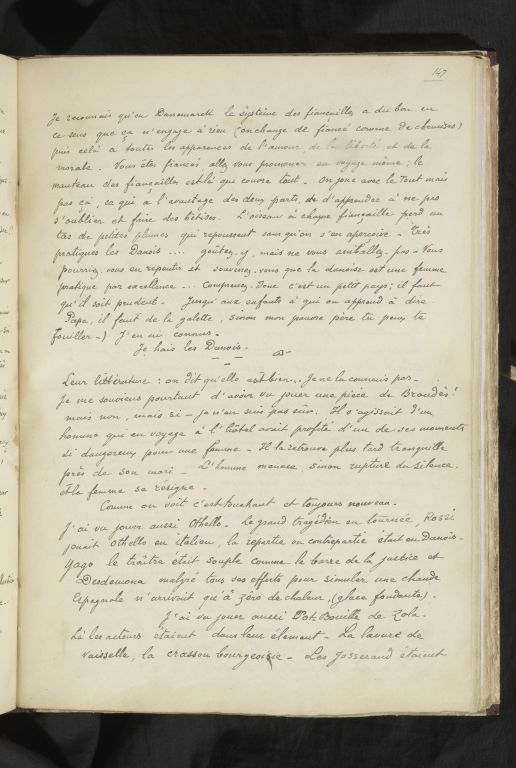 147
Je reconnais qu'en Danemark le système des fiançailles a du bon en
ce sens que ça n'engage à rien (on change de fiancé comme de chemises)
puis celà a toutes les apparences de l'amour, de la liberté et de la
morale. Vous êtes fiancés allez vous promener en voyage même; le
manteau des fiançailles est là qui couvre tout. On joue avec le tout mais
pas ça, ce qui a l'avantage des deux parts, de d'apprendre à ne pas
s'oublier et faire des bêtises. L'oiseau à chaque fiançaille perd un
tas de petites plumes qui repoussent sans qu'on s'en aperçoive - Très
pratiques les Danois .... goûtez-y, mais ne vous emballez pas - Vous
pourriez vous en repentir et souvenez-vous que la danoise est une femme
pratique par excellence ... Comprenez donc c'est un petit pays; il faut
qu'il soit prudent. Jusqu'aux enfants à qui on apprend à dire.
Papa, il faut de la galette, sinon mon pauvre père tu peux te
fouiller -) J'en ai connus -
Je hais les Danois.
Leur littérature : on dit qu'elle est bien ... Je ne la connais pas -
Je me souviens pourtant d'avoir vu jouer une pièce de Brandès!
mais non, mais si - je n'en suis pas sûr. Il s'agissait d'un
homme qui en voyage à l'hôtel avait profité d'un de ses moments
si dangereux pour une femme - Il la retrouve plus tard tranquille
près de son mari - L'homme menace, sinon rupture du silence.
Et la femme se résigne -
Comme on voit c'est touchant et toujours nouveau -
J'ai vu jouer aussi Othello - Le grand tragédien en tournée, Rossi
jouait Othello en italien, la repartie en contrepartie était en Danois -
Yago le traître était souple comme la barre de la justice et
Desdemona malgré tous ses efforts pour simuler une chaude
Espagnole n'arrivait qu'à zéro de chaleur, (glace fondante).
J'ai vu jouer aussi Pot-Bouille de Zola -
Là les acteurs étaient dans leur élément - La lavure de
vaisselle, la crasson bourgeoisie - Les Josserand étaient